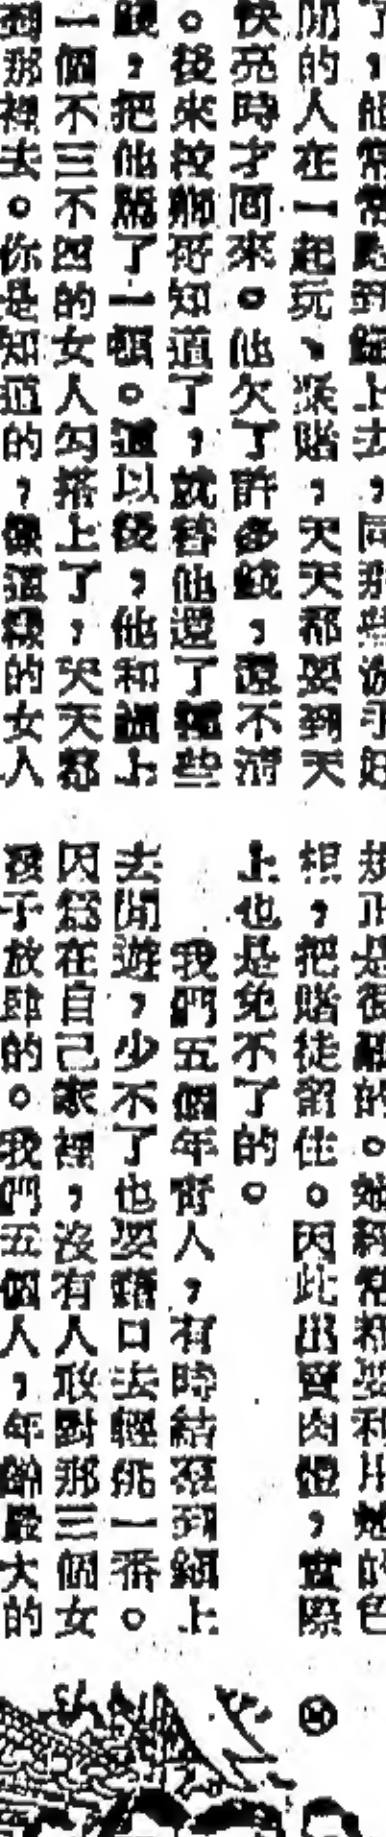 了，他常常跑到鎮上去，同那些游手好
閒的人在一起玩、聚賭，天天都要到天
快亮時才回來。他欠了許多錢，還不清
。後來拉娜哥知道了，就替他還了那些
錢，把他罵了一頓。這以後，他和鎮上
一個不三不四的女人勾搭上了，天天都
到那裡去。你是知道的，像這樣的女人
規正是很難的。她經常都要利用她的色
相，把賭徒留住。因此出賣肉體，實際
上也是免不了的。
我們五個年青人，有時結聚到鎮上
去閒遊，少不了也要藉口去輕挑一番。
因為在自己家裡，沒有人敢對那三個女
孩子放肆的。我們五個人，年齡最大的